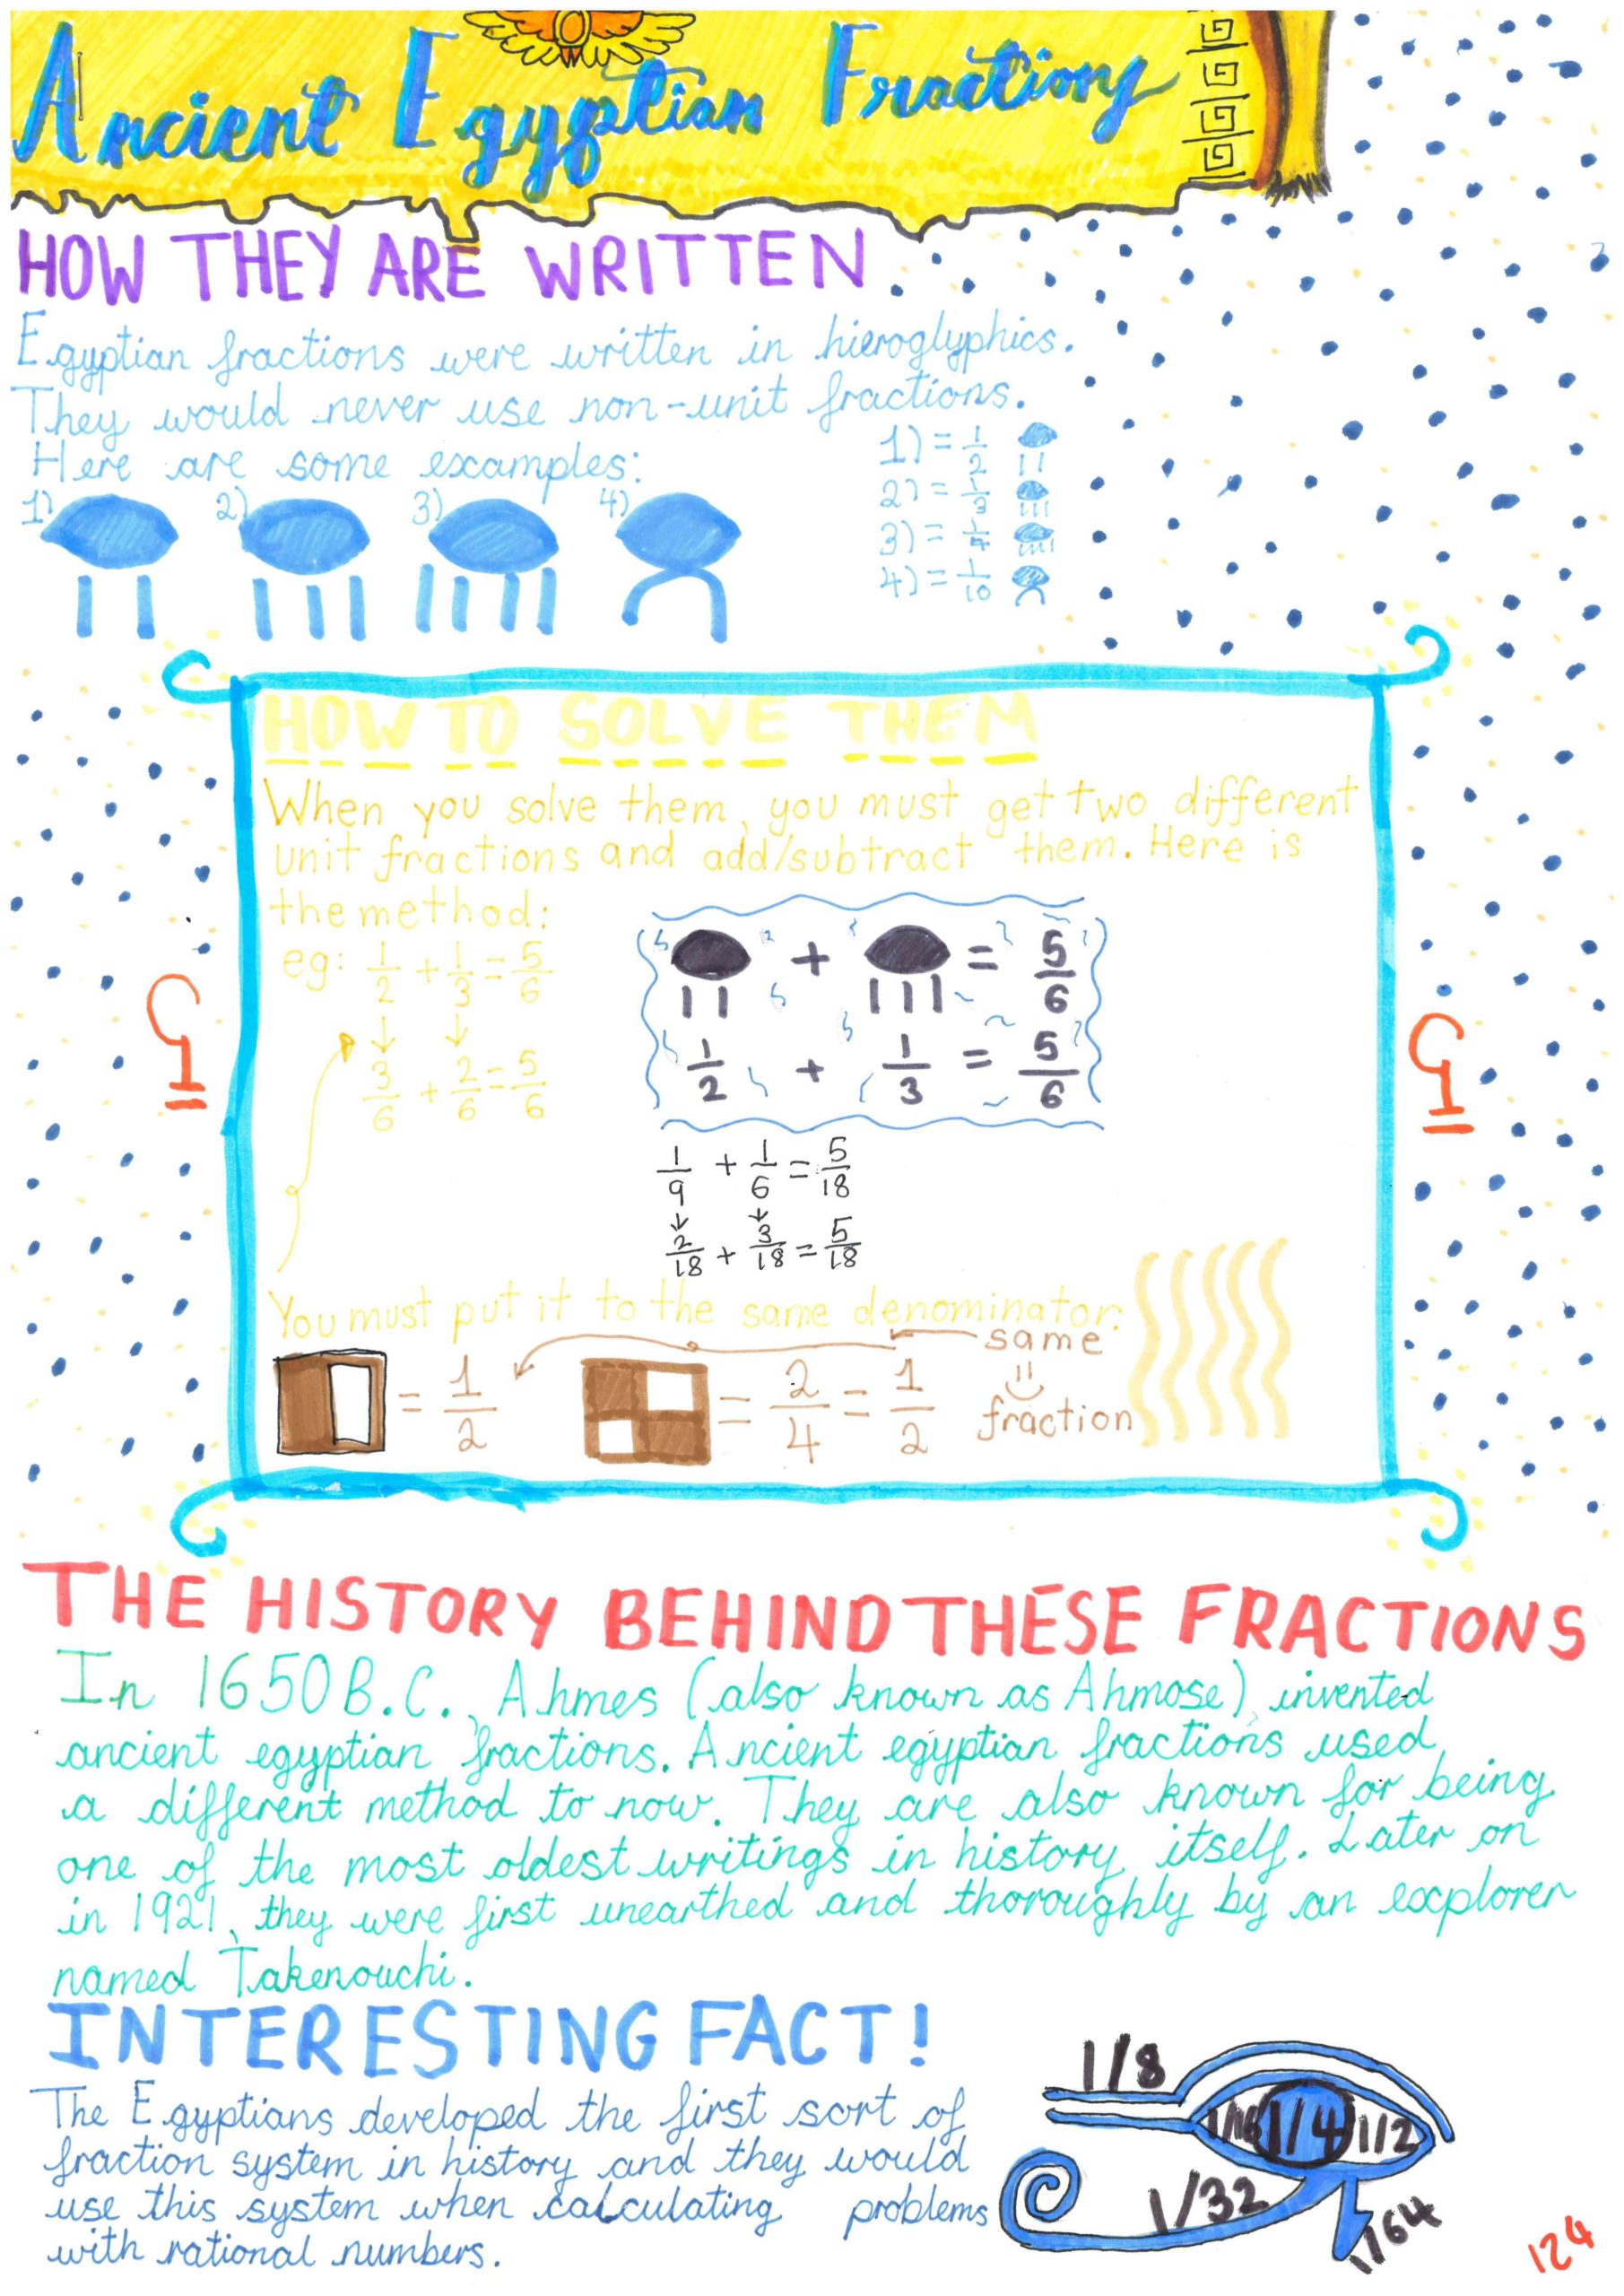 Ancient Egyptian Fractions
HOW THEY ARE WRITTEN.
Egyptian fractions were written in hieroglyphics.
They would never use non-unit fractions.
Here are some examples:
1) 2) 3) 4)
1) = 1/2
2) = 1/3
3) = 1/4
4) = 1/10
HOW TO SOLVE THEM
When you solve them, you must get two different
unit fractions and add/subtract them. Here is
the method:
eg: 1/2 + 1/3 = 5/6
3/6 + 2/6 = 5/6
+ = 5/6
1/2 + 1/3 = 5/6
1/9 + 1/6 = 5/18
2/18 + 3/18 = 5/18
You must put it to the same denominator.
= 1/2
= 2/4 = 1/2
same
fraction
THE HISTORY BEHIND THESE FRACTIONS
In 1650 B.C., Ahmes (also known as Ahmose), invented
ancient egyptian fractions. Ancient egyptian fractions used
a different method to now. They are also known for being
one of the most oldest writings in history itself. Later on
in 1921, they were first unearthed and thoroughly by an explorer
named Takenouchi.
INTERESTING FACT!
The Egyptians developed the first sort of
fraction system in history and they would
use this system when calculating problems
with rational numbers.
1/8
1/16 1/4 1/2
1/32
1/64
124